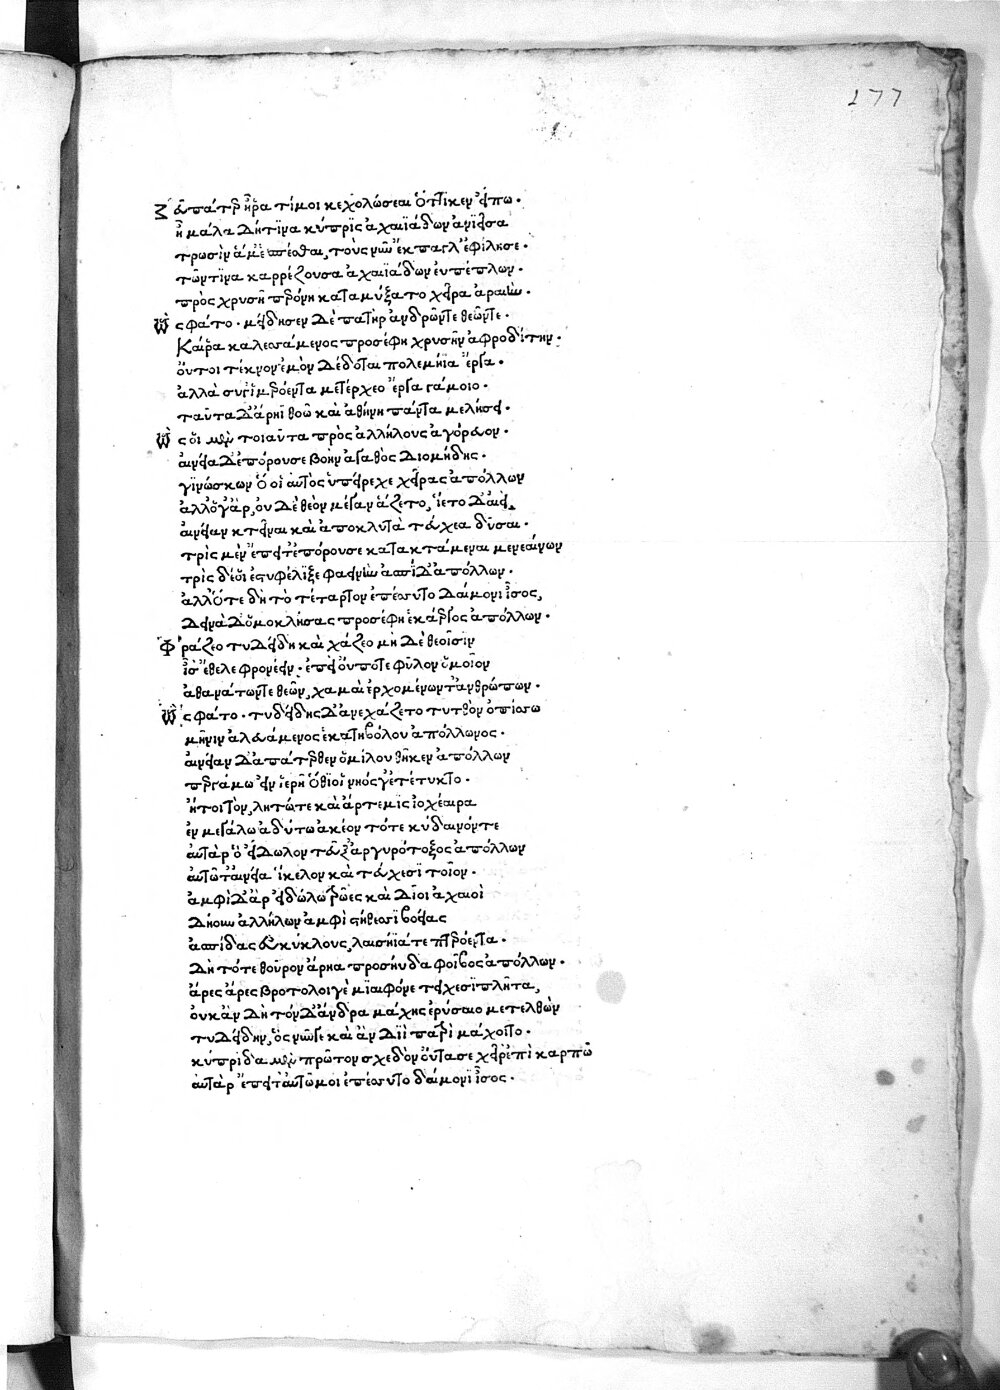 177
Ζεῦ πάτερ ἦ ῥά τί μοι κεχολώσεαι ὅττι κεν εἴπω·
ἦ μάλα δή τινα κύπρις ἀχαιϊάδων ἀνιεῖσα
τρωσὶν ἅμ' ἑσπέσθαι, τοὺς νῦν ἔκπαγλ' ἐφίλησε·
τῶν τινα καρρέζουσα ἀχαιϊάδων εὐπέπλων·
πρὸς χρυσῇ περόνῃ καταμύξατο χεῖρα ἀραιήν·
Ὣς φάτο· μείδησεν δὲ πατὴρ ἀνδρῶν τε θεῶν τε·
Καί ῥα καλεσσάμενος προσέφη χρυσῆν ἀφροδίτην·
οὔ τοι τέκνον ἐμὸν δέδοται πολεμήϊα ἔργα·
ἀλλὰ σύ γ' ἱμερόεντα μετέρχεο ἔργα γάμοιο·
ταῦτα δ' ἄρηϊ θοῷ καὶ ἀθήνῃ πάντα μελήσει·
Ὣς οἳ μὲν τοιαῦτα πρὸς ἀλλήλους ἀγόρευον·
αἰνείᾳ δ' ἐπόρουσε βοὴν ἀγαθὸς διομήδης·
γινώσκων ὅ οἱ αὐτὸς ὑπείρεχε χεῖρας ἀπόλλων
ἀλλ' ὅ γ' ἄρ' οὐδὲ θεὸν μέγαν ἅζετο, ἵετο δ' αἰεὶ
αἰνείαν κτεῖναι καὶ ἀπὸ κλυτὰ τεύχεα δῦσαι·
τρὶς μὲν ἔπειτ' ἐπόρουσε κατακτάμεναι μενεαίνων
τρὶς δέ οἱ ἐστυφέλιξε φαεινὴν ἀσπίδ' ἀπόλλων·
ἀλλ' ὅτε δὴ τὸ τέταρτον ἐπέσσυτο δαίμονι ἶσος,
δεινὰ δ' ὁμοκλήσας προσέφη ἑκάεργος ἀπόλλων·
Φράζεο τυδείδη καὶ χάζεο μὴ δὲ θεοῖσιν
ἶσ' ἔθελε φρονέειν· ἐπεὶ οὔποτε φῦλον ὁμοῖον
ἀθανάτων τε θεῶν, χαμαὶ ἐρχομένων τ' ἀνθρώπων·
Ὣς φάτο· τυδείδης δ' ἀνεχάζετο τυτθὸν ὀπίσσω
μῆνιν ἀλευάμενος ἑκατηβόλου ἀπόλλωνος·
αἰνείαν δ' ἀπάτερθεν ὁμίλου θῆκεν ἀπόλλων
περγάμῳ εἰν ἱερῇ ὅθι οἱ νηός γε τέτυκτο·
ἤτοι τὸν, λητώ τε καὶ ἄρτεμις ἰοχέαιρα
ἐν μεγάλῳ ἀδύτῳ ἀκέοντό τε κύδαινόν τε
αὐτὰρ ὁ εἴδωλον τεῦξ' ἀργυρότοξος ἀπόλλων
αὐτῷ τ' αἰνείᾳ ἴκελον καὶ τεύχεσι τοῖον·
ἀμφὶ δ' ἄρ' εἰδώλῳ τρῶες καὶ δῖοι ἀχαιοὶ
δῄουν ἀλλήλων ἀμφὶ στήθεσσι βοείας
ἀσπίδας εὐκύκλους, λαισήϊά τε πτερόεντα·
δὴ τότε θοῦρον ἄρηα προσηύδα φοῖβος ἀπόλλων·
ἆρες ἄρες βροτολοιγὲ μιαιφόνε τειχεσιπλῆτα,
οὐκ ἂν δὴ τόνδ' ἄνδρα μάχης ἐρύσαιο μετελθὼν
τυδείδην, ὃς νῦν γε καὶ ἂν διῒ πατρὶ μάχοιτο·
κύπριδα μὲν πρῶτον σχεδὸν οὔτασε χεῖρ' ἐπὶ καρπῷ
αὐτὰρ ἔπειτ' αὐτῷ μοι ἐπέσσυτο δαίμονι ἶσος·